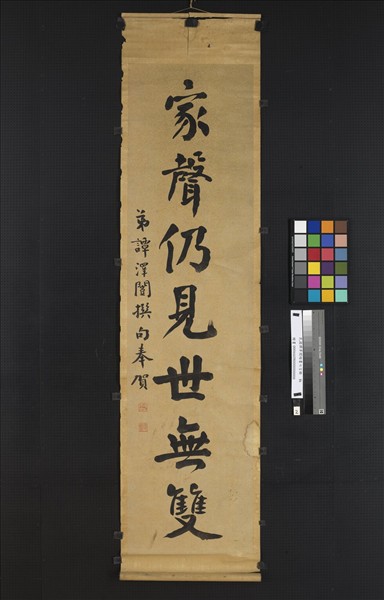 家聲仍見世無雙
弟譚澤闓撰句奉賀